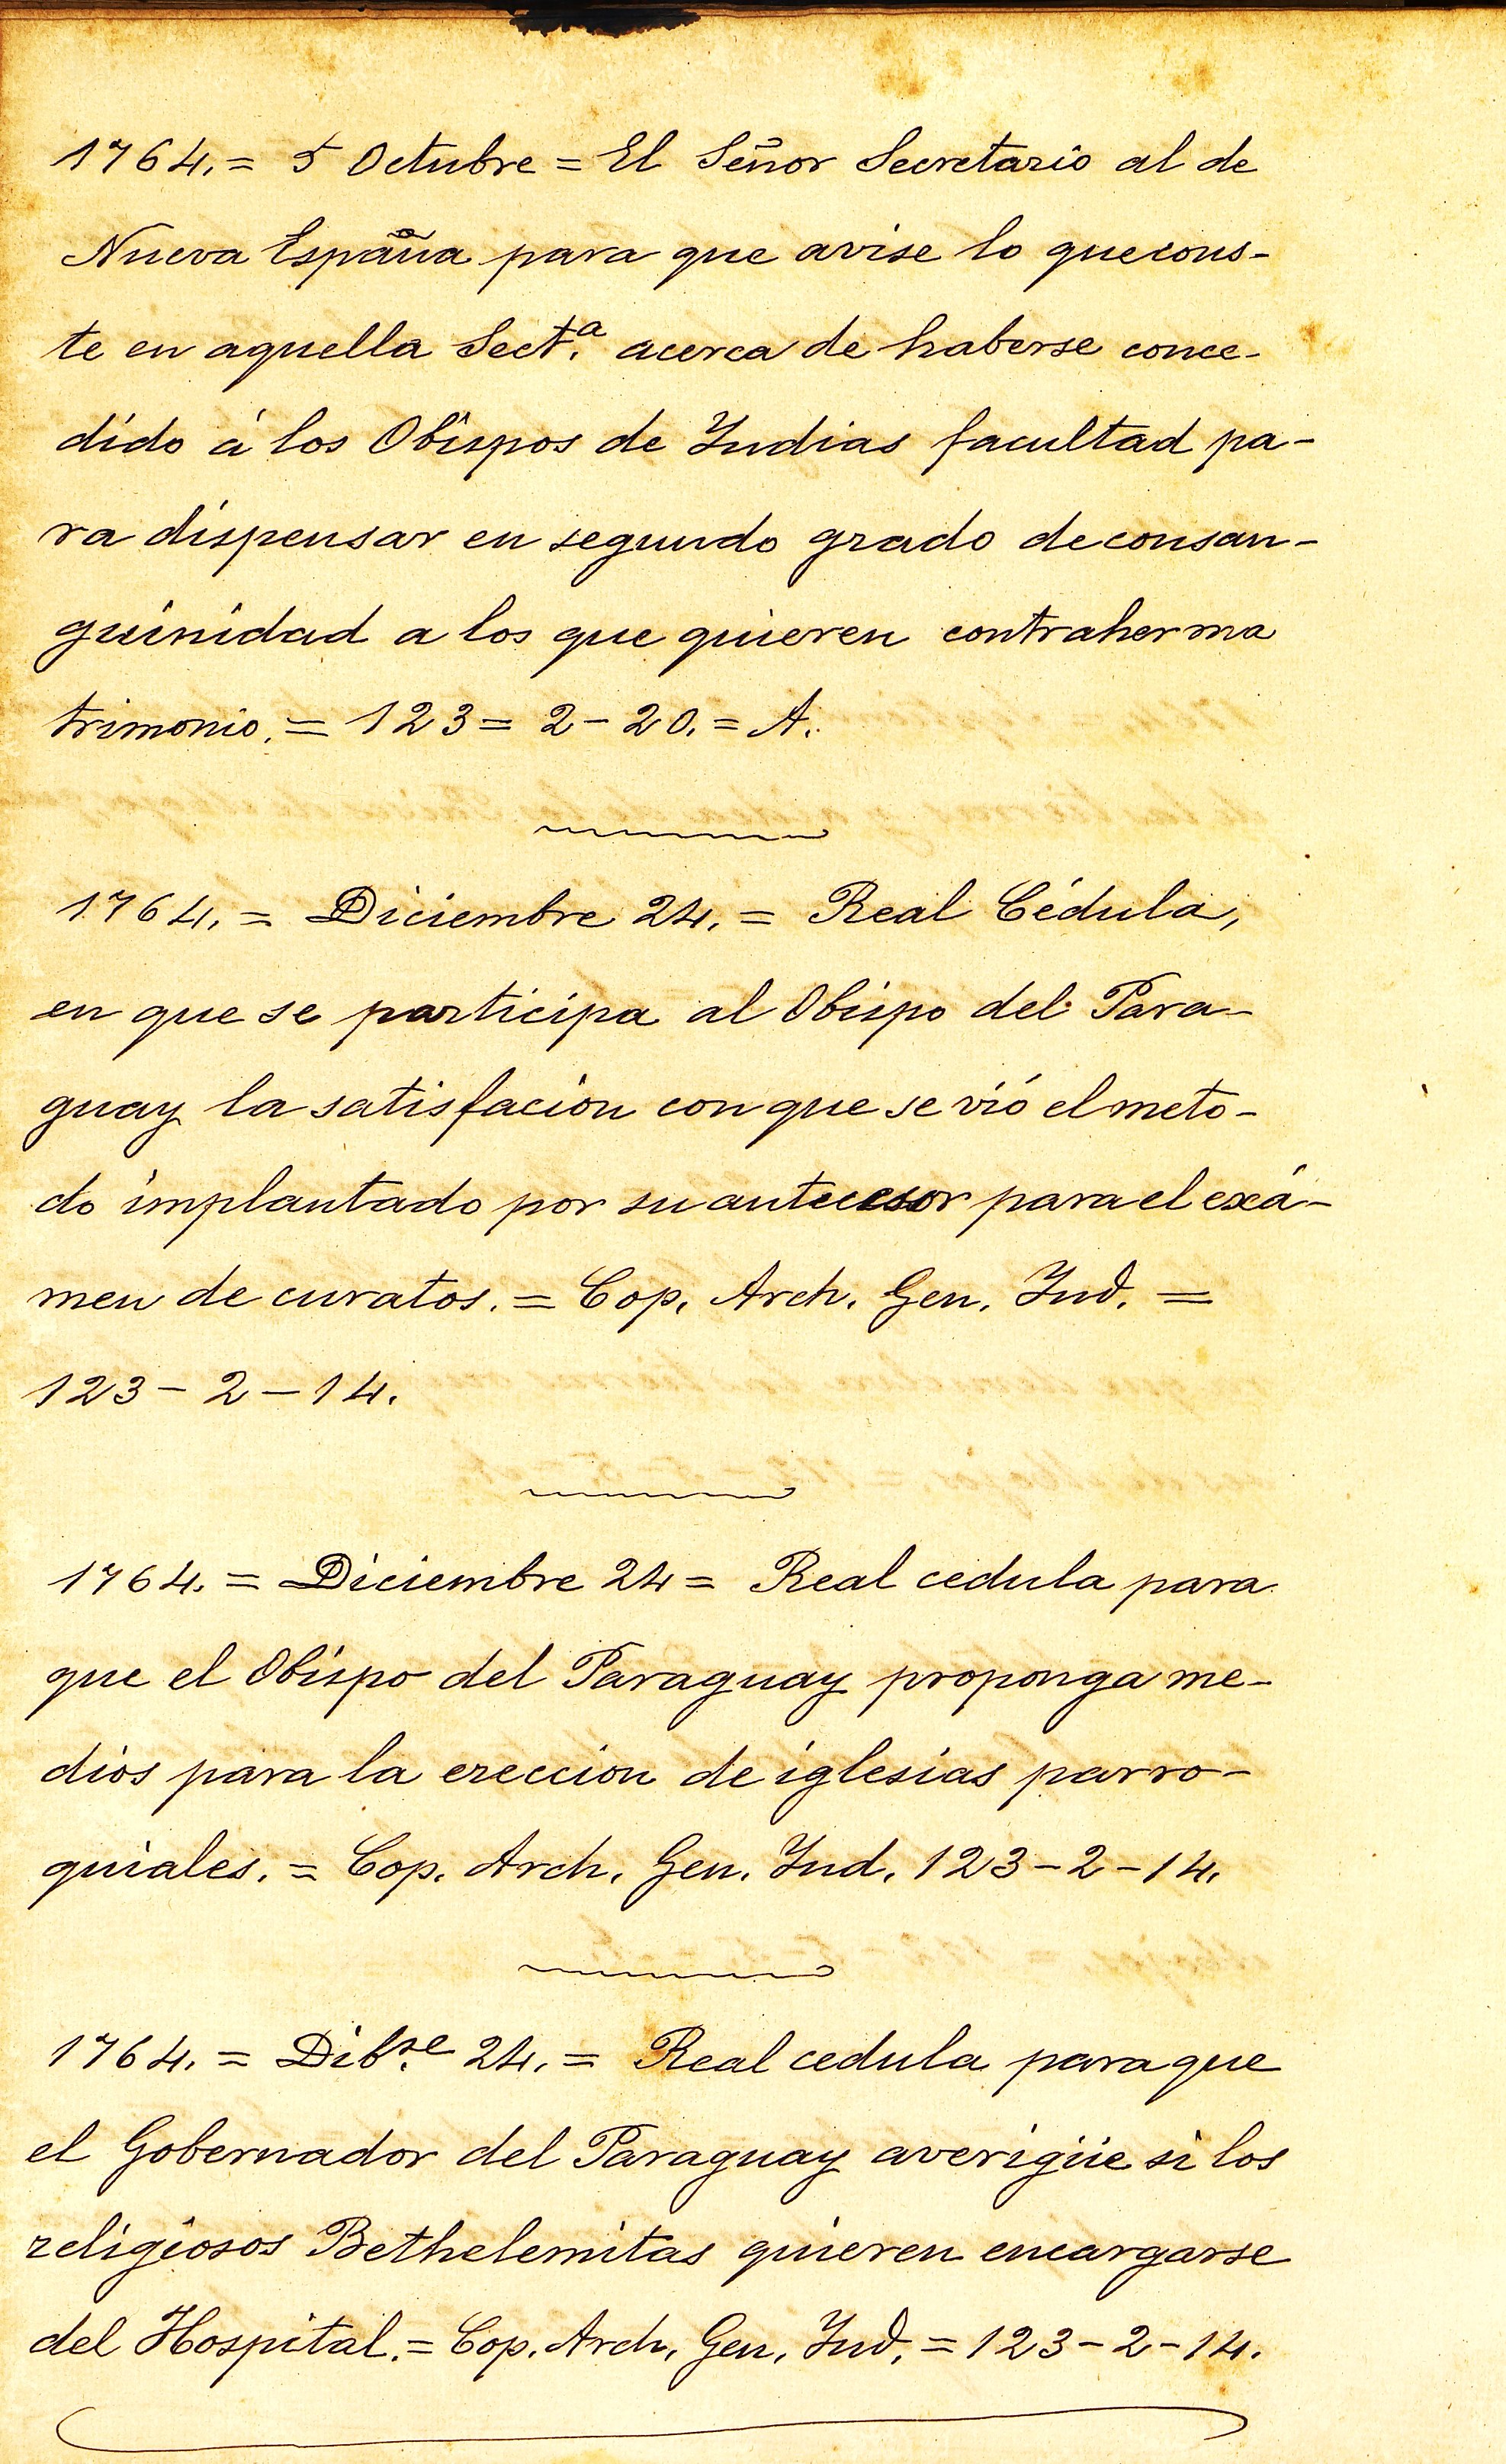 1764.= 5 Octubre = El Señor Secretario al de
Nueva España para que avise lo que cons-
te en aquella Sect.ª acerca de haberse conce-
dido á los Obispos de Indias facultad pa-
ra dispensar en segundo grado de consan-
guinidad a los que quieren contraher ma
trimonio. = 123 = 2 - 20. = A.
1764. = Diciembre 24. = Real Cédula,
en que se participa al Obispo del Para-
guay la satisfacion con que se vió el meto-
do implantado por su antecesor para el exá-
men de curatos. = Cop. Arch. Gen. Ind. =
123 - 2 - 14.
1764. = Diciembre 24 = Real cedula para
que el Obispo del Paraguay proponga me-
dios para la ereccion de iglesias parro-
quiales. = Cop. Arch. Gen. Ind. 123 - 2 - 14.
1764. = Dib.re 24. = Real cedula para que
el Gobernador del Paraguay averigüe si los
religiosos Bethelemitas quieren encargarse
del Hospital. = Cop. Arch. Gen. Ind. = 123 - 2 - 14.